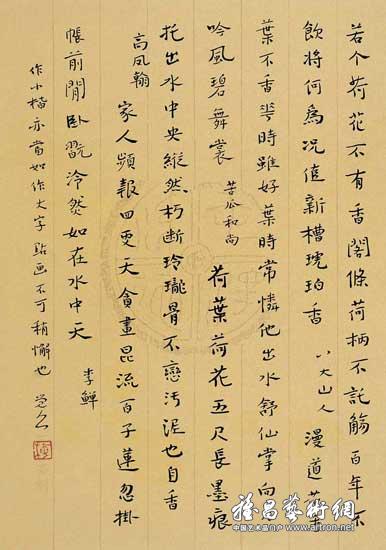 若个荷花不有香閣條荷柄不託觴百年不
飲將何爲況值新槽琥珀香 八大山人 漫道華
葉不香華時雖好葉時常憐他出水舒仙掌向
吟風碧舞裳 苦瓜和尚 荷葉荷花五尺長墨痕
托出水中央縱然朽斷玲瓏骨不戀汚泥也自香
高凤翰 家人頻報四更天貪畫昆流百子蓮忽掛
帳前閒卧翫冷然如在水中天 李鱓
作小楷亦當如作大字點画不可稍懈也
雅昌藝術網
中国艺术品门户 www.artron.net